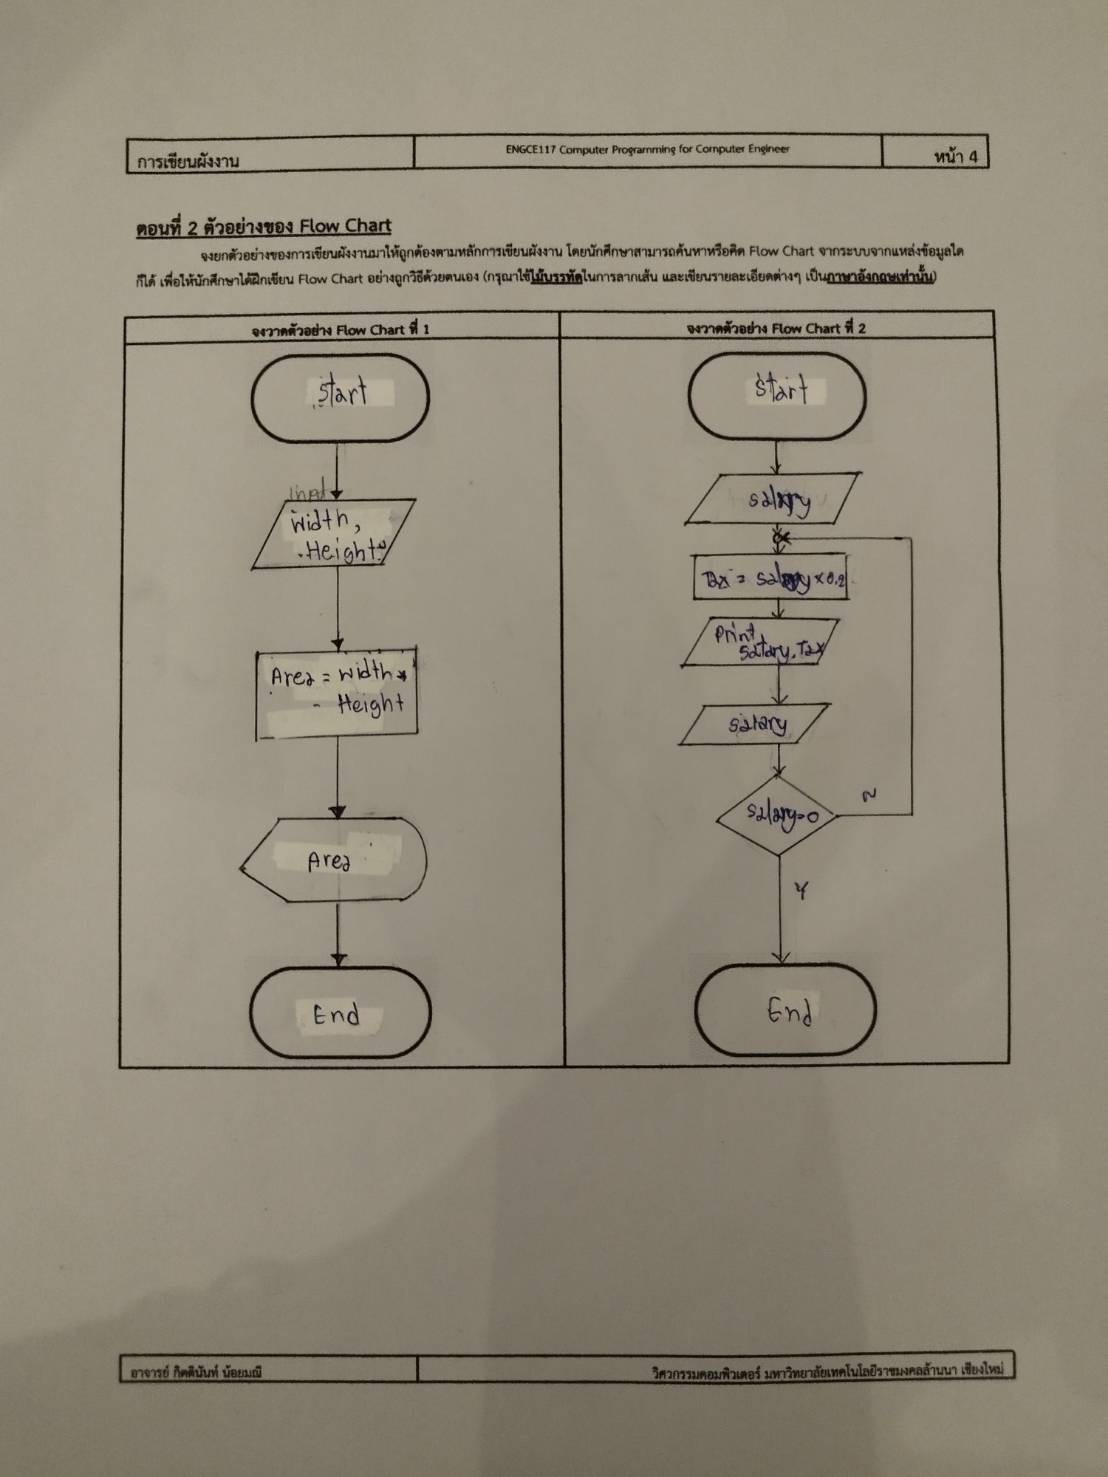 การเขียนผังงาน
ENGCE117 Computer Programming for Computer Engineer
หน้า 4
ตอนที่ 2 ตัวอย่างของ Flow Chart
จงยกตัวอย่างของการเขียนผังงานมาให้ถูกต้องตามหลักการเขียนผังงาน โดยนักศึกษาสามารถค้นหาหรือคิด Flow Chart จากระบบจากแหล่งข้อมูลใด
ก็ได้ เพื่อให้นักศึกษาได้ฝึกเขียน Flow Chart อย่างถูกวิธีด้วยตนเอง (กรุณาใช้ไม้บรรทัดในการลากเส้น และเขียนรายละเอียดต่างๆ เป็นภาษาอังกฤษเท่านั้น)
จงวาดตัวอย่าง Flow Chart ที่ 1
Start
Width,
Height
Area = Width *
Height
Area
End
จงวาดตัวอย่าง Flow Chart ที่ 2
Start
salary
Tax = salary x 0.2
Print
salary, Tax
salary
salary=0
N
Y
End
อาจารย์ กิตตินันท์ น้อยมณี
วิศวกรรมคอมพิวเตอร์ มหาวิทยาลัยเทคโนโลยีราชมงคลล้านนา เชียงใหม่